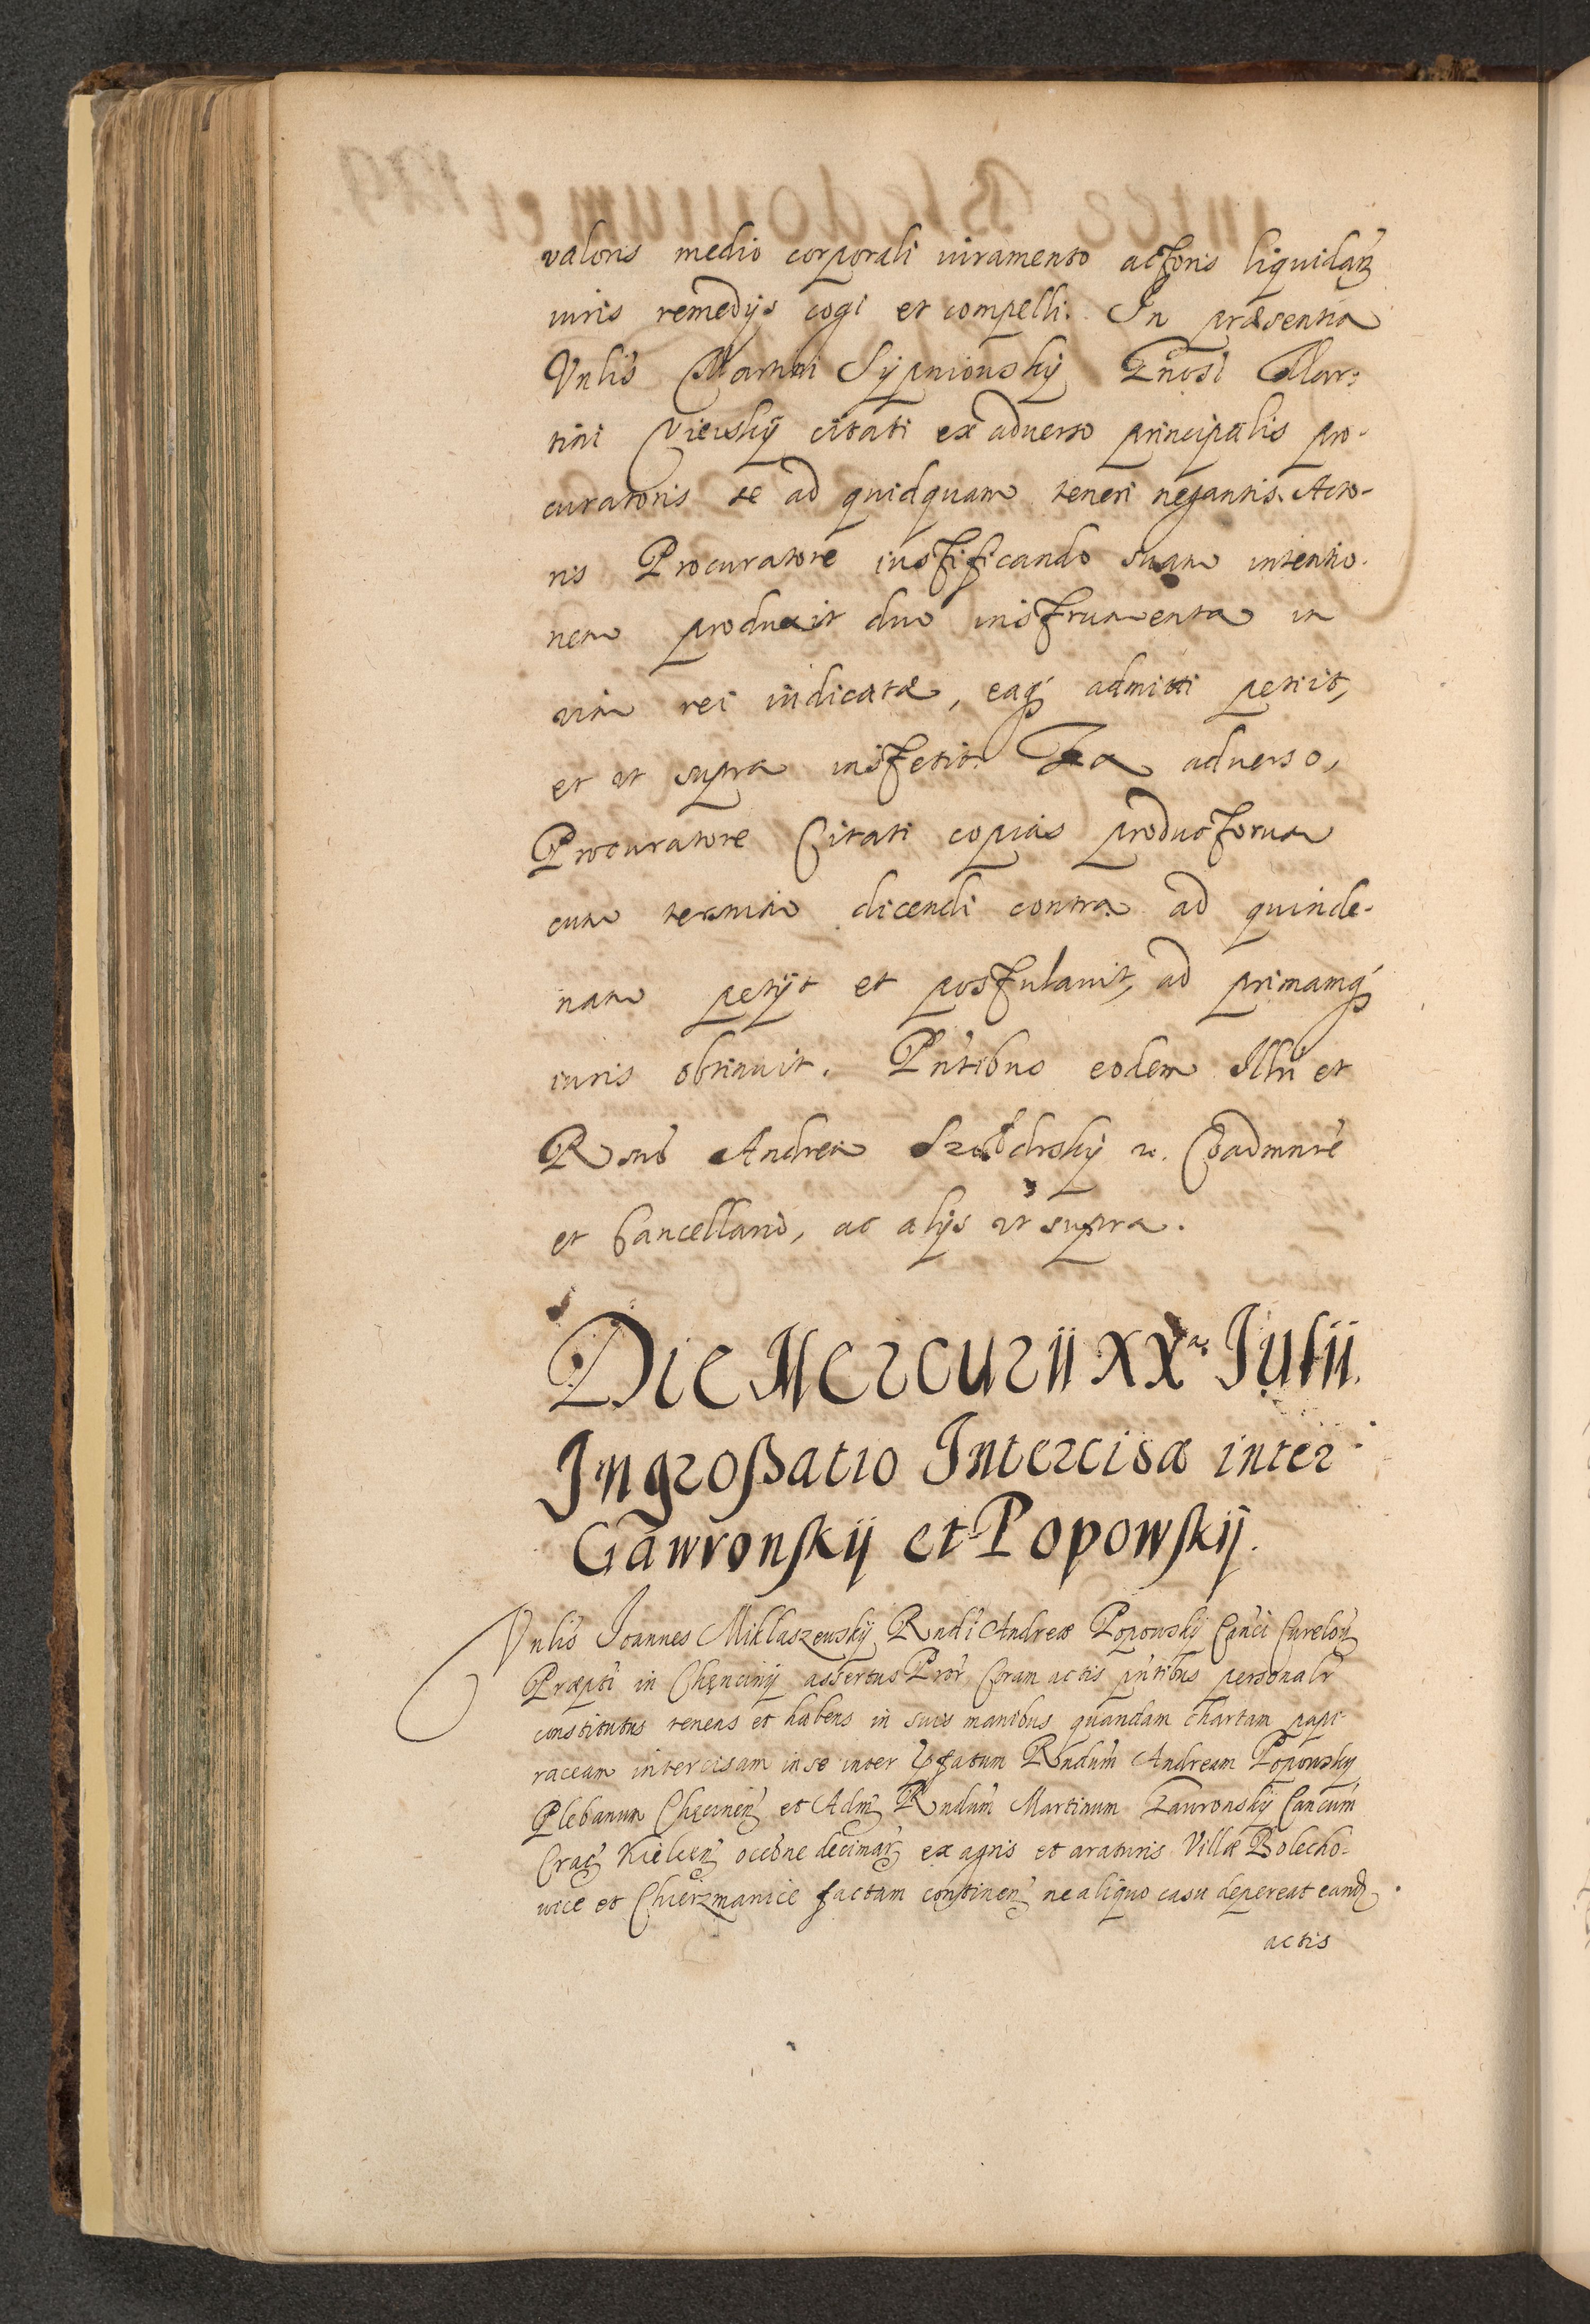 valoris medio corporali iuramento actoris liquidan͂
iuris remedijs cogi et compelli. In præsentia
Vnlis Martini Sijpniowskij Gnosi Mar:
tini Ciewskij citati ex aduerso principalis pro-
curatoris se ad quidquam teneri negantis. Acto-
ris Procuratore iustificando suam intentio-
nem produxit duo instrumenta in
vim rei iudicatæ, eaq́ꝫ admitti petiit,
et vt supra institit. Ex aduerso,
Procuratore Citati copias productorum
cum termino dicendi contra ad quinde-
nam petijt et postulauit, ad primamq́ꝫ
iuris obtinuit. Pntibus eodem Illri et
R Andrea
et Cancellario, ac alijs vt supra.
Die Mercurii XXa Julii.
Ingroßatio Intercisæ inter
Gawronskij et Popowskij.
Vnlis Joannes Miklaszewskij Rndi Andreæ Popowskij Canci Curelou͂
Præpti in Chęncinij assertus Pror Coram actis pntibus personalr
constitutus tenens et habens in suis manibus quandam chartam papi-
raceam intercisam in se inter præfatum Rndum Andream Popowskij
Plebanum Chęcinen͂ et Adm͂ Rndum Martinum Gawronskij Cancum
Crac͂ Kielcen͂ occne decimar͂ ex agris et araturis Villæ Bolecho-
wice et Chierzmanice factam continen͂ ne aliquo casu depereat eand͂
actis